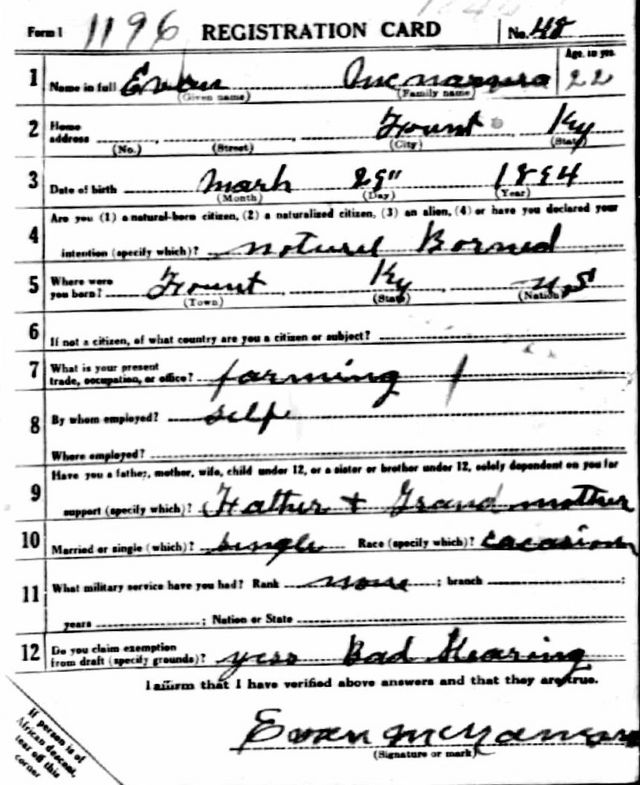 Form 1 1196 REGISTRATION CARD No. 48
1 Name in full Evan McNamara Age, in yrs. 22
(Given name) (Family name)
2 Home address Fount Ky
(No.) (Street) (City) (State)
3 Date of birth Marh 29" 1894
(Month) (Day) (Year)
4 Are you (1) a natural-born citizen, (2) a naturalized citizen, (3) an alien, (4) or have you declared your
intention (specify which)? Naturel Borned
5 Where were you born? Fount Ky U.S
(Town) (State) (Nation)
6 If not a citizen, of what country are you a citizen or subject?
7 What is your present trade, occupation, or office? farming
8 By whom employed? self
Where employed?
9 Have you a father, mother, wife, child under 12, or a sister or brother under 12, solely dependent on you for
support (specify which)? Father + Grand mother
10 Married or single (which)? single Race (specify which)? Cacasion
11 What military service have you had? Rank none ; branch ;
years ; Nation or State
12 Do you claim exemption from draft (specify grounds)? yess Bad Hearing
I affirm that I have verified above answers and that they are true.
Evan McNamara
(Signature or mark)
If person is of
African descent,
tear off this
corner